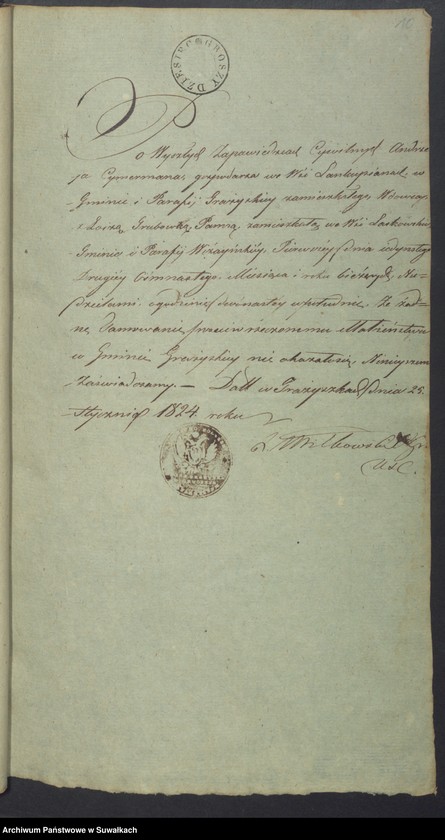 16
DZIESIEC GROSZY
Po Wyszłych Zapowiedziach Cywilnych Andrze-
ja Cymermana, gospodarza we Wsi w
Gminie i Parafij Grażyskiey zamieszkałego, Wdowca,
z Panną zamieszkałą we Wsi
Gminie i Parafij Wiżayńskiey, Pierwszey dnia
Drugiey Ośmnastego, Miesiąca i roku bieżących, Nie-
dzielami o godzinie dwunastey w południe, Ze żad-
ne Tamowanie przeciw rzeczonemu Małżeństwu
w Gminie Grażyskiey nie okazało się, Ninieyszem
Zaświadczamy. — Datt w Grażyszkach dnia 25
Stycznia 1824 roku
Archiwum Państwowe w Suwałkach